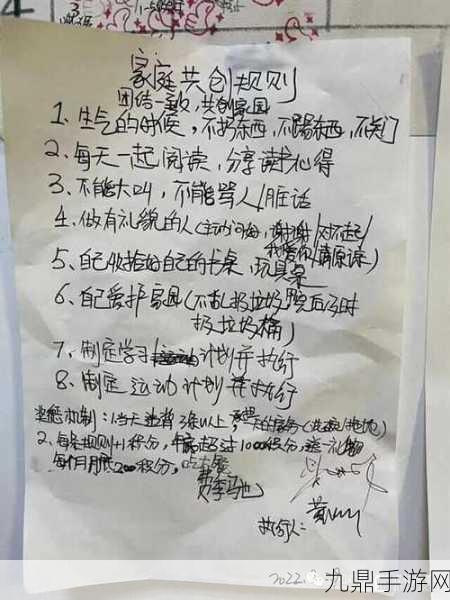 家庭共创规则
团结一致,共创家园
1、生气的时候,不扔东西,不踢东西,不关门
2、每天一起阅读,分享读书心得
3、不能大叫,不能骂人/脏话
4、做有礼貌的人(主动问好,谢谢/对不起/
我爱你/请原谅)
5、自己收拾好自己的书桌,玩具桌
6、自己爱护家园(不乱扔垃圾,
扔垃圾桶)
7、制定学习计划并执行
8、制定运动计划并执行
奖惩机制:1、当天违背3条以上,
2、每条规则+1积分,年底超过1000积分,送礼物
每个月满200积分,吃大餐
执行人:
2022
九鼎手游网